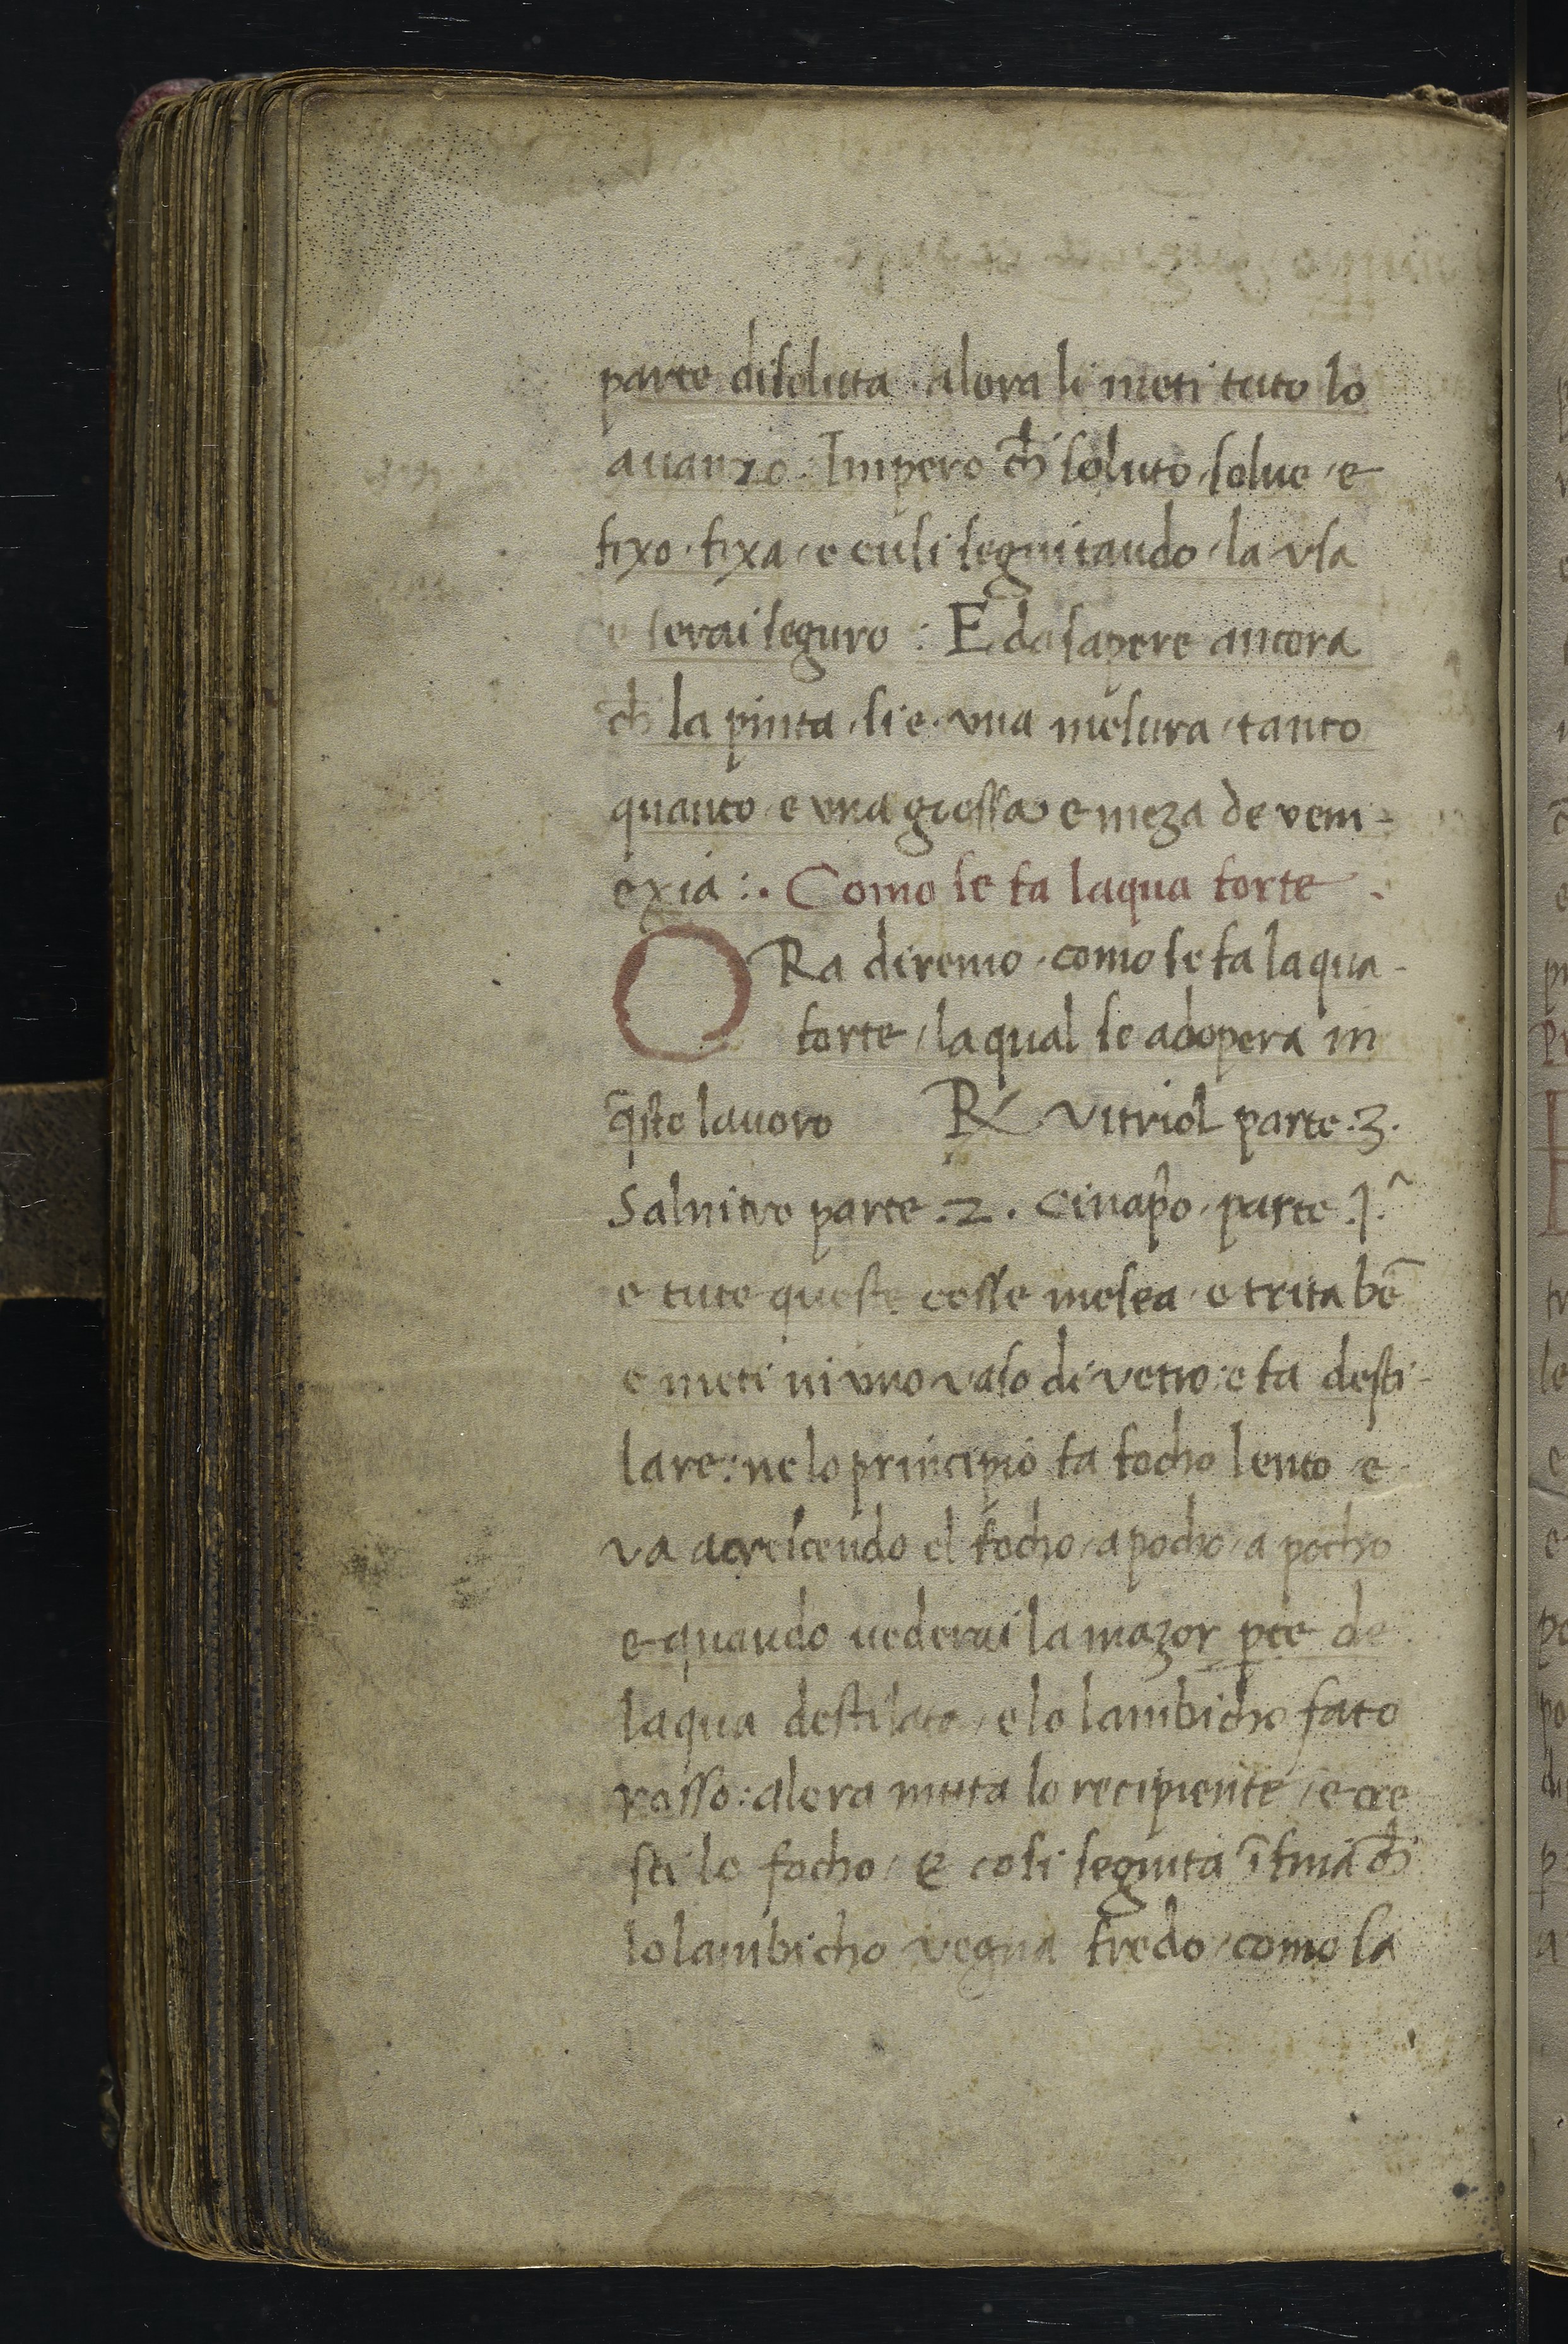 parte disoluta · alora li meti tuto lo
auanzo · Impero ch̄ soluto · solue · e
fixo · fixa · e cusi seguitando · la vsa
e serai seguro : E da sapere ancora
ch̄ la pinta · si e · vna mesura · tanto
quanto · e vna giossa e meza de veni-
exia :· Como se fa laqua forte ·
ORa diremo · como se fa laqua-
forte · laqual se adopera in
q̄sto lauoro ℞ Vitriol parte ·3·
Salnitro parte ·2· Cinap̄o · parte ·1·ᵃ
e tute queste cosse mesea · e trita bē
e meti ni vno vaso di vetro : e fa desti-
lare : ne lo principio fa focho lento · e
va acrescendo el focho · a pocho · a pocho
e quando vederai la mazor p̱te de
laqua destilata · e lo lambicho fato
rosso : alora muta lo recipiente · e cre
sci lo focho · e cosi seguita ī fina ch̄
lo lambicho vegna fredo · como la